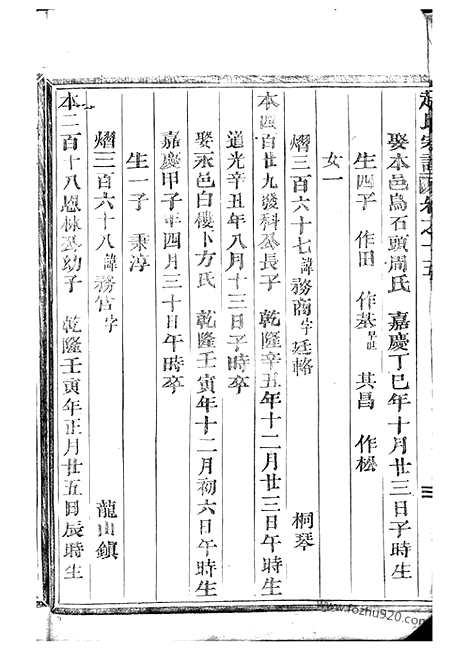 趙氏家譜 卷之十五
娶本邑烏石頭周氏 嘉慶丁巳年十月廿三日子時生
生四子 作田 作基早世 其昌 作松
女一
熠三百六十七諱務商字廷輅 桐琴
本四百廿九發科公長子 乾隆辛丑年十二月廿三日午時生
道光辛丑年八月十三日子時卒
娶永邑白樓卜方氏 乾隆壬寅年十二月初六日午時生
嘉慶甲子年四月三十日午時卒
生一子 秉淳
熠三百六十八諱務官字 龍山鎮
本二百十八恩林公幼子 乾隆壬寅年正月廿五日辰時生
www.fozhu920.com